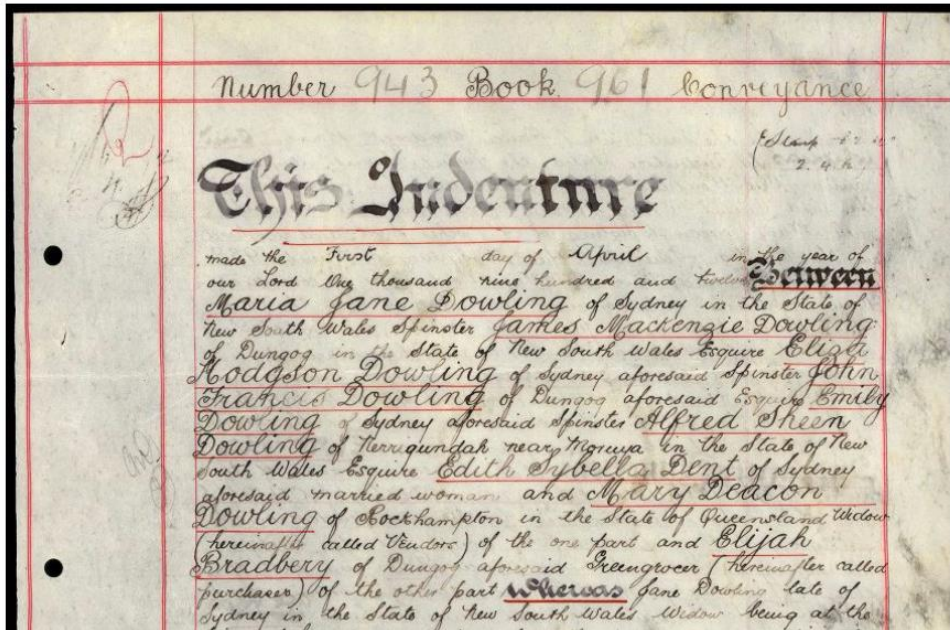 Number 943 Book 961 Conveyance
(Stamp
This Indenture
made the First day of April in the year of
our Lord One thousand nine hundred and twelve Between
Maria Jane Dowling of Sydney in the State of
New South Wales Spinster James Mackenzie Dowling
of Dungog in the State of New South Wales Esquire Eliza
Hodgson Dowling of Sydney aforesaid Spinster John
Francis Dowling of Dungog aforesaid Esquire Emily
Dowling of Sydney aforesaid Spinster Alfred Sheen
Dowling of Nerrigundah near Moruya in the State of New
South Wales Esquire Edith Sybella Dent of Sydney
aforesaid married woman and Mary Deacon
Dowling of Rockhampton in the State of Queensland Widow
(hereinafter called Vendors) of the one part and Elijah
Bradbery of Dungog aforesaid Greengrocer (hereinafter called
purchaser) of the other part Whereas Jane Dowling late of
Sydney in the State of New South Wales Widow being at the